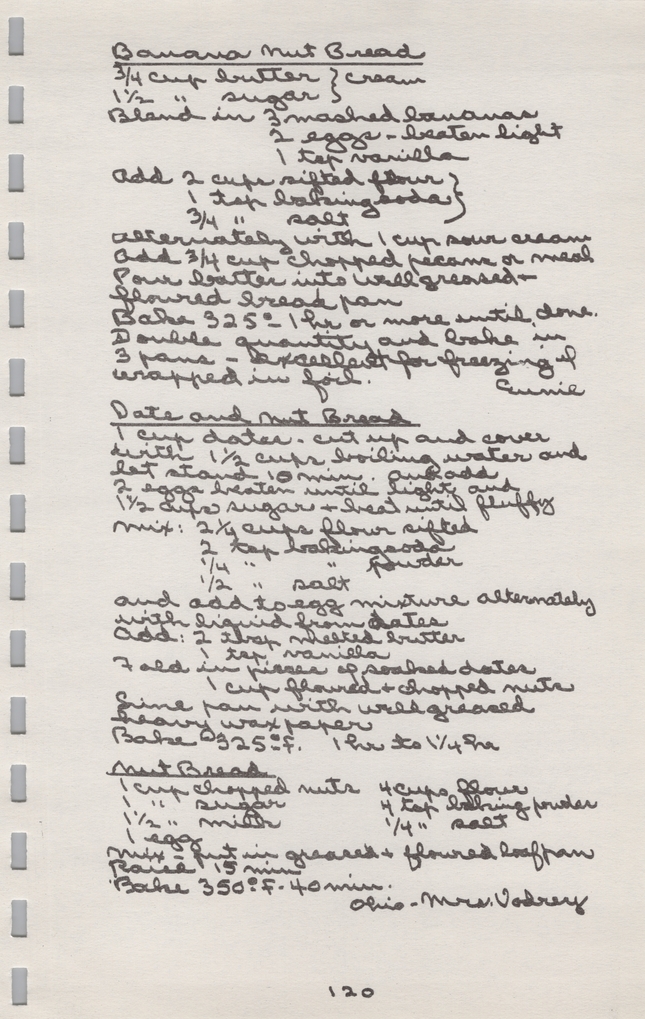 Banana Nut Bread
3/4 cup butter } cream
1 1/2 " sugar }
Blend in 3 mashed bananas
2 eggs - beaten light
1 tsp vanilla
Add 2 cups sifted flour }
1 tsp baking soda }
3/4 " salt
alternately with 1 cup sour cream
Add 3/4 cup chopped pecans or meal
Pour batter into well greased +
floured bread pan
Bake 325° - 1 hr or more until done.
Double quantity and bake in
3 pans - excellent for freezing if
wrapped in foil.
Eunie
Date and Nut Bread
1 cup dates - cut up and cover
with 1 1/2 cups boiling water and
let stand 10 min. and add
2 eggs beaten until light and
1 1/2 cups sugar + beat until fluffy
Mix: 2 1/4 cups flour sifted
2 tsp baking soda
1/4 " " powder
1/2 " salt
and add to egg mixture alternately
with liquid from dates
Add: 2 tbsp melted butter
1 tsp vanilla
Fold in pieces of soaked dates
1 cup floured + chopped nuts
Line pan with well greased
heavy wax paper
Bake 325° F. 1 hr to 1 1/4 hr
Nut Bread
1 cup chopped nuts 4 cups flour
1 " sugar 4 tsp baking powder
1 1/2 " milk 1/4 " salt
1 egg
Mix - put in greased + floured loaf pan
Raise 15 min
Bake 350° F - 40 min.
Ohio - Mrs. Vodrey
120